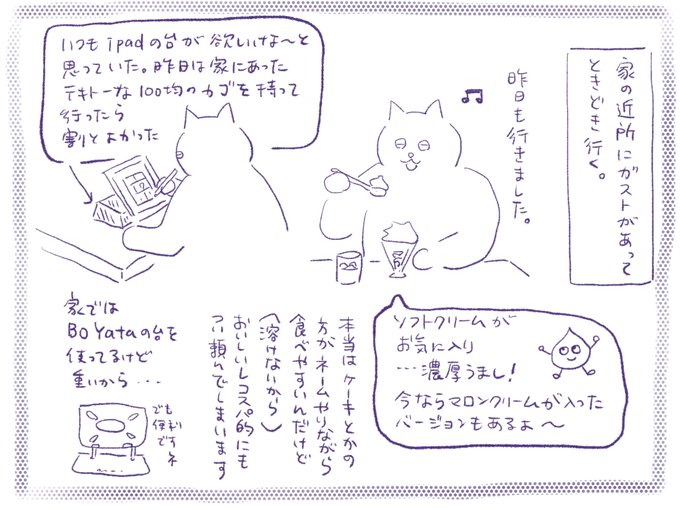 家の近所にガストがあって
ときどき行く。
昨日も行きました。
いつもipadの台が欲しいけな〜と
思っていた。昨日は家にあった
テキトーな100均のカゴを持って
行ったら
割とよかった
ソフトクリームが
お気に入り
…濃厚うまし!
今ならマロンクリームが入った
バージョンもあるよ〜
本当はケーキとかの
方がネームやりながら
食べやすいんだけど
(溶けないから)
おいしいしコスパ的にも
つい頼んでしまいます
家では
BoYataの台を
使ってるけど
重いから…
でも
便利
ですネ